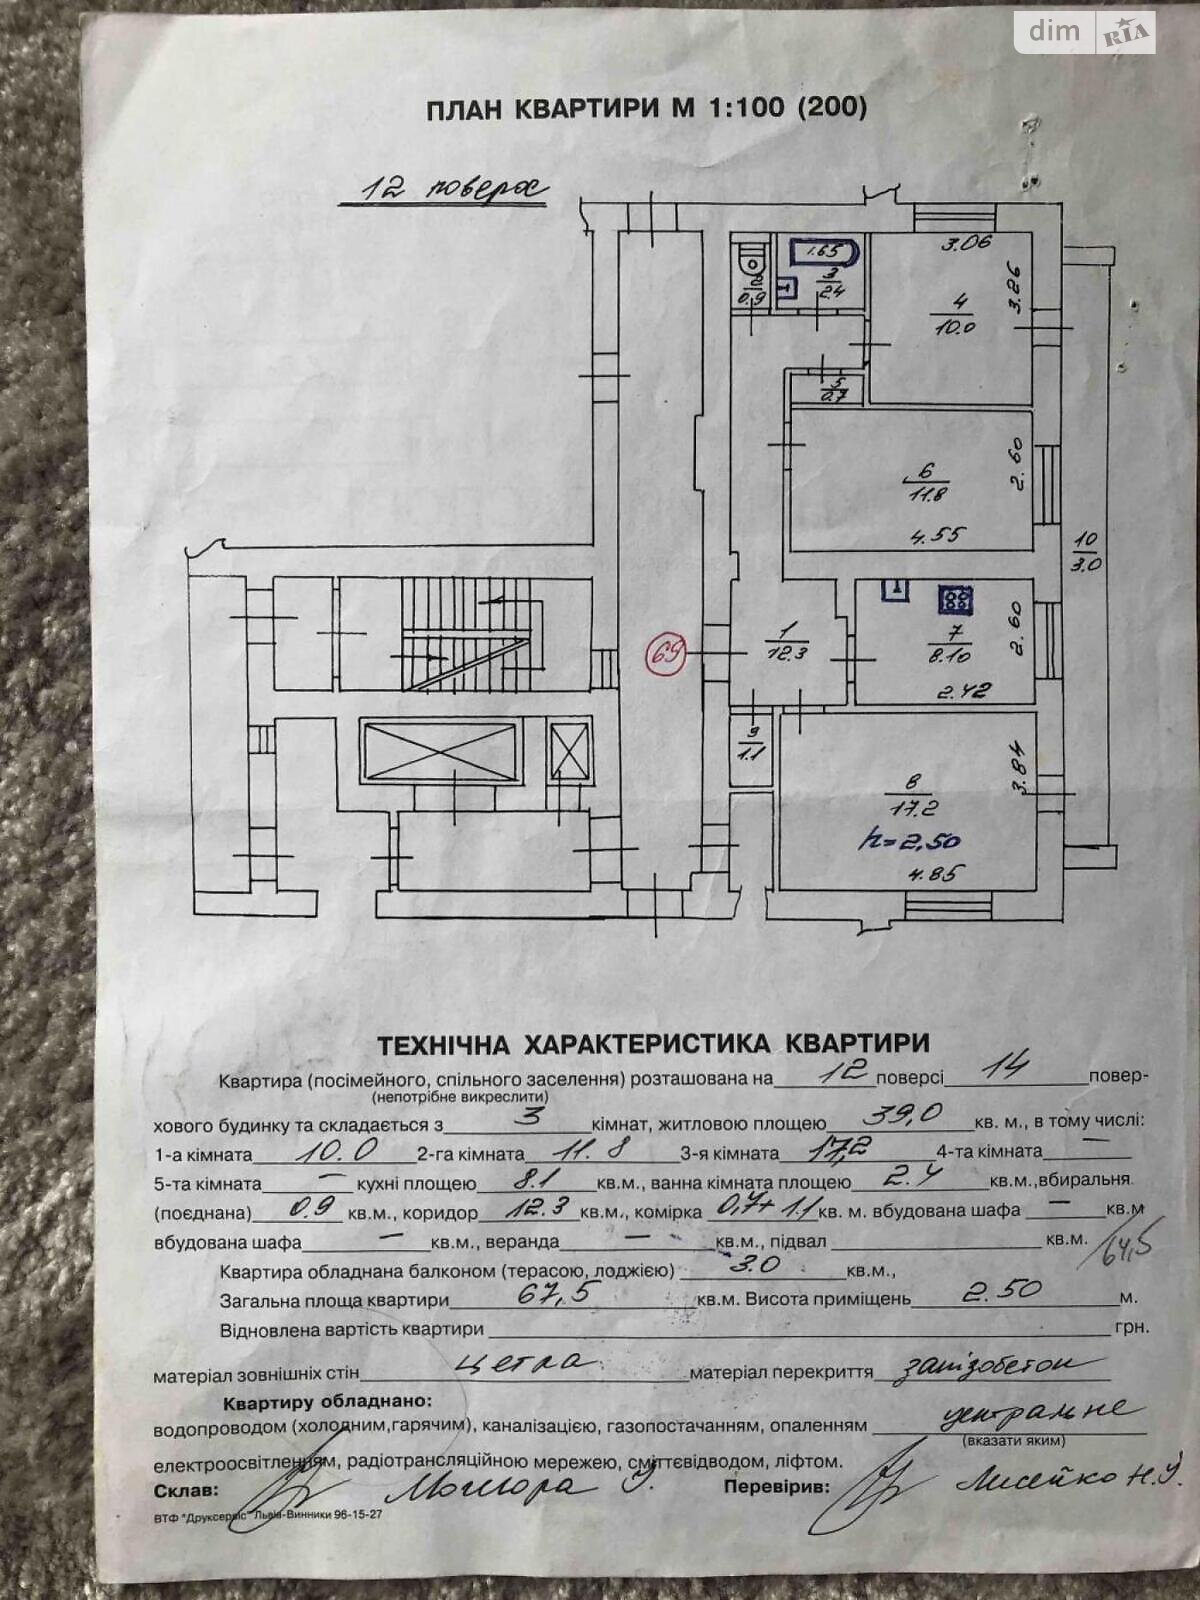 dim RIA
ПЛАН КВАРТИРИ М 1:100 (200)
12 поверх
1.65
3.06
2
0.9
3
2.4
4
10.0
3.26
5
0.7
6
11.8
2.60
4.55
10
3.0
69
1
12.3
7
8.10
2.60
2.42
9
1.1
8
17.2
3.84
h=2,50
4.85
ТЕХНІЧНА ХАРАКТЕРИСТИКА КВАРТИРИ
Квартира (посімейного, спільного заселення) розташована на 12 поверсі 14 повер-
(непотрібне викреслити)
хового будинку та складається з 3 кімнат, житловою площею 39,0 кв. м., в тому числі:
1-а кімната 10.0 2-га кімната 11.8 3-я кімната 17,2 4-та кімната —
5-та кімната — кухні площею 8.1 кв.м., ванна кімната площею 2.4 кв.м.,вбиральня
(поєднана) 0.9 кв.м., коридор 12.3 кв.м., комірка 0,7+1.1 кв. м. вбудована шафа — кв.м
вбудована шафа — кв.м., веранда — кв.м., підвал кв.м. /64,5
Квартира обладнана балконом (терасою, лоджією) 3.0 кв.м.,
Загальна площа квартири 67,5 кв.м. Висота приміщень 2.50 м.
Відновлена вартість квартири грн.
матеріал зовнішніх стін цегла матеріал перекриття залізобетон
Квартиру обладнано:
водопроводом (холодним,гарячим), каналізацією, газопостачанням, опаленням центральне
(вказати яким)
електроосвітленням, радіотрансляційною мережею, сміттєвідводом, ліфтом.
Склав: Перевірив:
ВТФ "Друксервіс" Львів-Винники 96-15-27